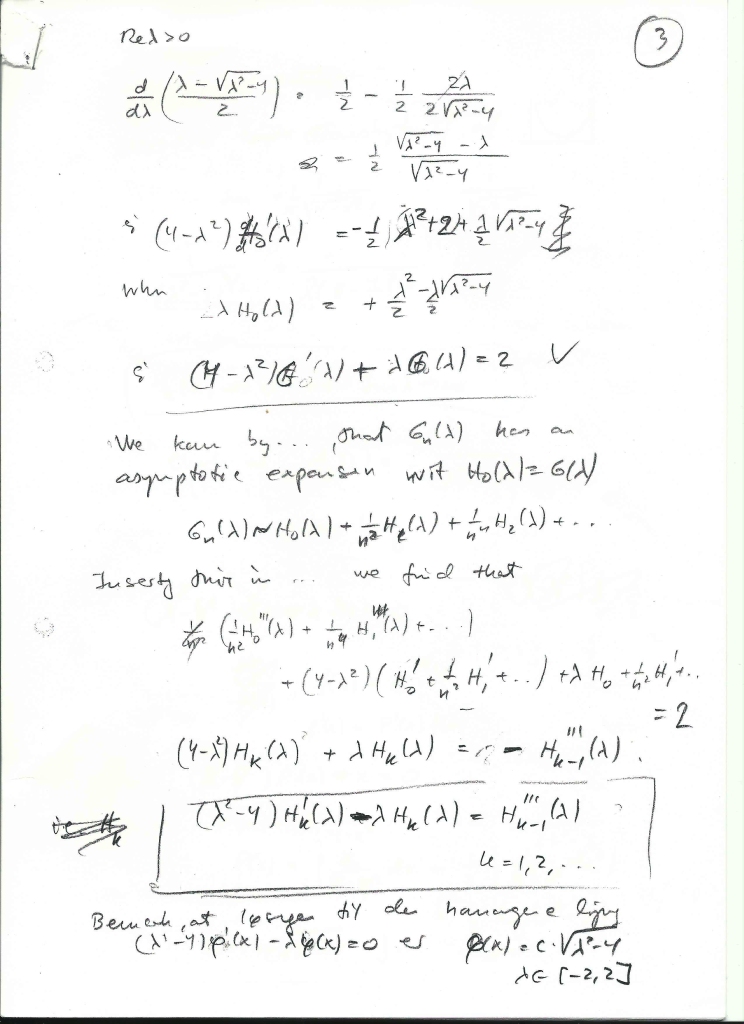 Re λ > 0
3
d/dλ ( (λ − √(λ²−4)) / 2 ) = 1/2 − 1/2 · 2λ / (2√(λ²−4))
= 1/2 · (√(λ²−4) − λ) / √(λ²−4)
(4−λ²) H₀'(λ) = −1/2 λ² + 2 + λ/2 √(λ²−4)
when
λ H₀(λ) = + λ²/2 − λ/2 √(λ²−4)
(4−λ²) G₀'(λ) + λ G₀(λ) = 2 ✓
We kan by ..., that Gₙ(λ) has an
asymptotic expansion wit H₀(λ) = G(λ)
Gₙ(λ) ~ H₀(λ) + 1/n² H₁(λ) + 1/n⁴ H₂(λ) + ...
Inserty this in ... we find that
(1/n² H₀'''(λ) + 1/n⁴ H₁'''(λ) + ...)
+ (4−λ²)(H₀' + 1/n² H₁' + ..) + λ H₀ + 1/n² H₁' + ..
= 2
(4−λ²) H_k(λ)' + λ H_k(λ) = − H'''_{k−1}(λ).
(λ²−4) H_k'(λ) − λ H_k(λ) = H'''_{k−1}(λ)
k = 1, 2, ...
Bemerk, at løsningen til den homogene lign
(λ²−4) φ'(x) − λφ(x) = 0 er φ(x) = c·√(λ²−4)
λ ∈ [−2, 2]